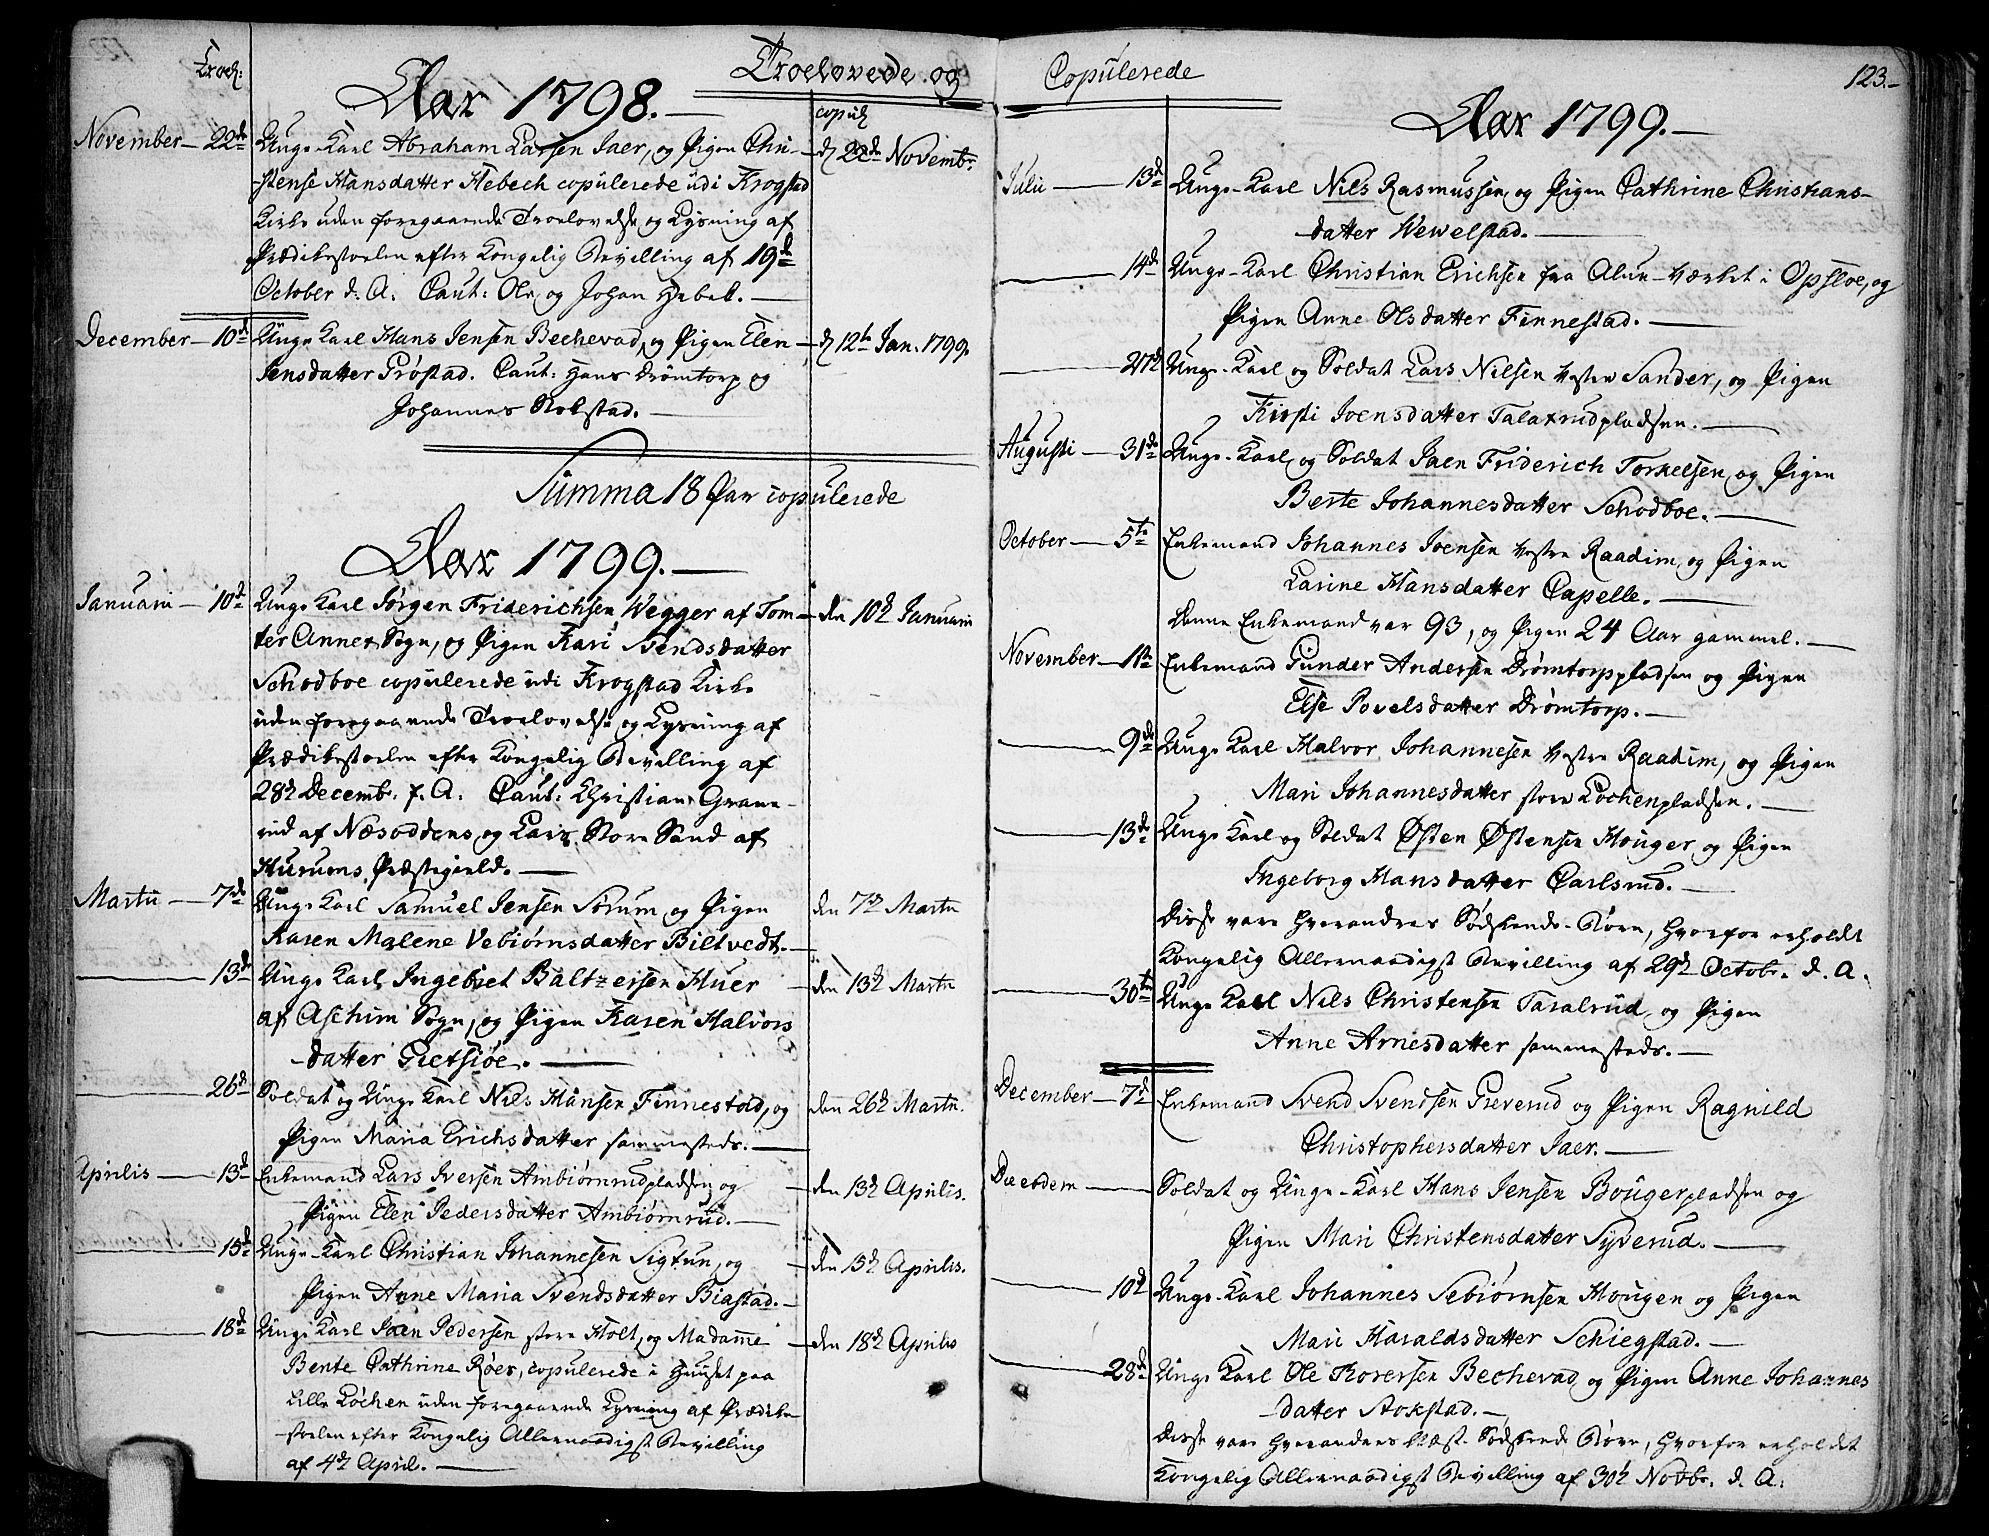 Troelovede og
Troel:
Aar 1798.
copul.
November — 22de Unge-Karl Abraham Larsen Jaer, og Pigen Chri- d. 22de Novembr.
stense Hansdatter Hebech copulerede udi Krogstad
Kirke uden foregaaende Troelovelse og Lysning af
Prædikestoelen efter Kongelig Bevilling af 19de
October d. A. Caut: Ole og Johan Hebek. —
December — 10de Unge Karl Hans Jensen Bechevad, og Pigen Elen d. 12te Jan. 1799.
Jensdatter Grøstad. Caut: Hans Drømtorp og
Johannes Stokstad. —
Summa 18 Par copulerede
Aar 1799. —
Januarii — 10de Unge Karl Jørgen Friderichsen Wegger af Tom- den 10de Januarii
ter Annex Sogn, og Pigen Kari Svendsdatter
Schodboe copulerede udi Krogstad Kirke
uden foregaaende Troelovelse og Lysning af
Prædikestoelen efter Kongelig Bevilling af
28de Decemb. f. A. Caut: Christian Grane-
rud af Næsoddens, og Lars Store Sand af
Hurums Præstegield. —
Martii — 7de Unge Karl Samuel Jensen Sørum og Pigen den 7de Martii
Karen Malene Vebiørnsdatter Biltvedt. —
— 13de Unge Karl Ingebret Baltzersen Huer den 13de Martii
af Aschim Sogn, og Pigen Karen Halvors
datter Gietsiøe. —
— 26de Soldat og Unge Karl Nils Hansen Finnestad, og den 26de Martii.
Pigen Maria Erichsdatter sammesteds. —
Aprilis — 13de Enkemand Lars Iversen Ambiørnrudpladsen og den 13de Aprilis.
Pigen Elen Pedersdatter Ambiørnrud. —
— 15de Unge-Karl Christian Johannesen Sigtun, og den 15de Aprilis.
Pigen Anne Maria Svendsdatter Biastad. —
— 18de Unge Karl Jaen Pedersen store Holt, og Madame den 18de Aprilis
Bente Cathrine Røer, copulerede i Huuset paa
Lille Løchen uden foregaaende Lysning af Prædike-
stoelen efter Kongelig Allernaadigst Bevilling
af 4de April. —
Copulerede
123.
Aar 1799. —
Julii — 13de Unge-Karl Nils Rasmussen og Pigen Cathrine Christians-
datter Wewelstad. —
— 14de Unge-Karl Christian Erichsen fra Alun-Værket i Opsloe, og
Pigen Anne Olsdatter Finnestad. —
— 27de Unge-Karl og Soldat Lars Nilsen Vestre Sander, og Pigen
Kirsti Joensdatter Talaxrudpladsen. —
Augusti — 31de Unge-Karl og Soldat Jaen Friderich Torkelsen og Pigen
Berte Johannesdatter Schodboe. —
October — 5te Enkemand Johannes Joensen Vestre Raadim og Pigen
Larine Hansdatter Capelle. —
Denne Enkemand var 93, og Pigen 24 Aar gammel. —
November — 1te Enkemand Gunder Andersen Drømtorppladsen og Pigen
Else Povelsdatter Drømtorp. —
— 9de Unge Karl Halvor Johannesen Vestre Raadim, og Pigen
Mari Johannesdatter store Løchenpladsen. —
— 13de Unge Karl og Soldat Østen Østensen Houger og Pigen
Ingeborg Hansdatter Carlsrud. —
Disse vare hverandres Sødskende-Børn, hvorfor erholdt
Kongelig Allernaadigst Bevilling af 29de Octobr. d. A.
— 30te Unge Karl Nils Christensen Taralrud og Pigen
Anne Arnesdatter sammesteds. —
December — 7de Enkemand Svend Svendsen Greverud og Pigen Ragnild
Christophersdatter Jaer. —
Do eodem — Soldat og Unge-Karl Hans Jensen Bougerpladsen og
Pigen Mari Christensdatter Syverud. —
— 10de Unge-Karl Johannes Sebiørnsen Hougen og Pigen
Mari Haraldsdatter Schiegstad. —
— 28de Unge Karl Ole Thoresen Bechevad og Pigen Anne Johannes
datter Stokstad. —
Disse vare hverandres Næst-Sødskende Børn, hvorfor erholdt
Kongelig Allernaadigst Bevilling af 30te Novbr. d. A.